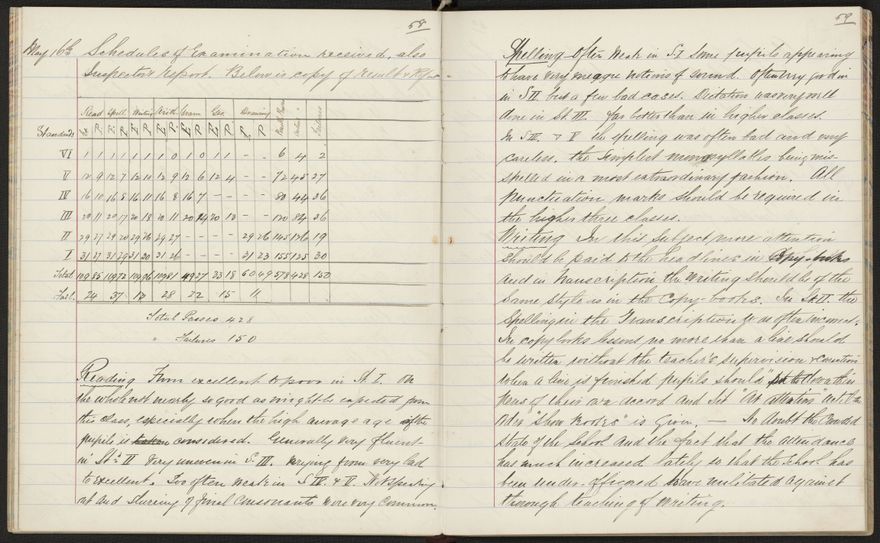 58
May 16th Schedules of Examination received, also
Inspector's report. Below is copy of result & Repo
Read Spell. Writing Arith Gram Geo Drawing
Standards E. P. E. P. E. P. E. P. E. P. E. P. E. P. Failures
VI 1 1 1 1 1 1 1 0 1 0 1 1 - - 6 4 2
V 12 9 12 7 12 10 12 9 12 6 12 4 - - 72 45 27
IV 16 10 16 8 16 11 16 8 16 7 - - - - 80 44 36
III 20 11 20 17 20 18 20 11 20 14 20 13 - - 120 84 36
II 29 27 29 20 29 26 29 27 - - - - 29 26 145 126 19
I 31 27 31 31 21 26 - - - - 21 23 155 125 30
Total 109 85 109 72 109 109 81 49 27 23 18 60 49 578 428 150
Fail. 24 37 28 22 15 11
Total Passes 428
" Failures 150
Reading From excellent to poor in St. I. On
the whole not nearly so good as might be expected from
this class, especially when the high average age of the
pupils is considered. Generally very fluent
in St. II Very uneven in S. III. varying from very bad
to excellent. Too often weak in S IV. & V. Not speaking
out and slurring of final consonants were very common.
59
Spelling Often weak in S. I some pupils appearing
to have very meagre notions of sound. Often very good in
in S II. but a few bad cases. Dictation was very well
done in St. III. far better than in higher classes.
In S IV. & V the spelling was often bad and very
careless. the simplest monosyllables being mis
spelled in a most extraordinary fashion. All
punctuation marks should be required in
the higher three classes.
Writing In this subject more attention
should be paid to the headlines in Copy-books
and in Transcription the writing should be of the
same style as in the Copy-books. In St II. the
Spelling in the Transcription was often incorrect.
In copy books lessons no more than a line should
be written without the teacher's supervision & correction
when a line is finished pupils should throw their
pens of their own accord and sit "At attention" until the
order "Show books" is Given. — No doubt the Crowded
state of the School and the fact that the attendance
has much increased lately so that the School has
been under-officered have militated against
thorough teaching of writing.